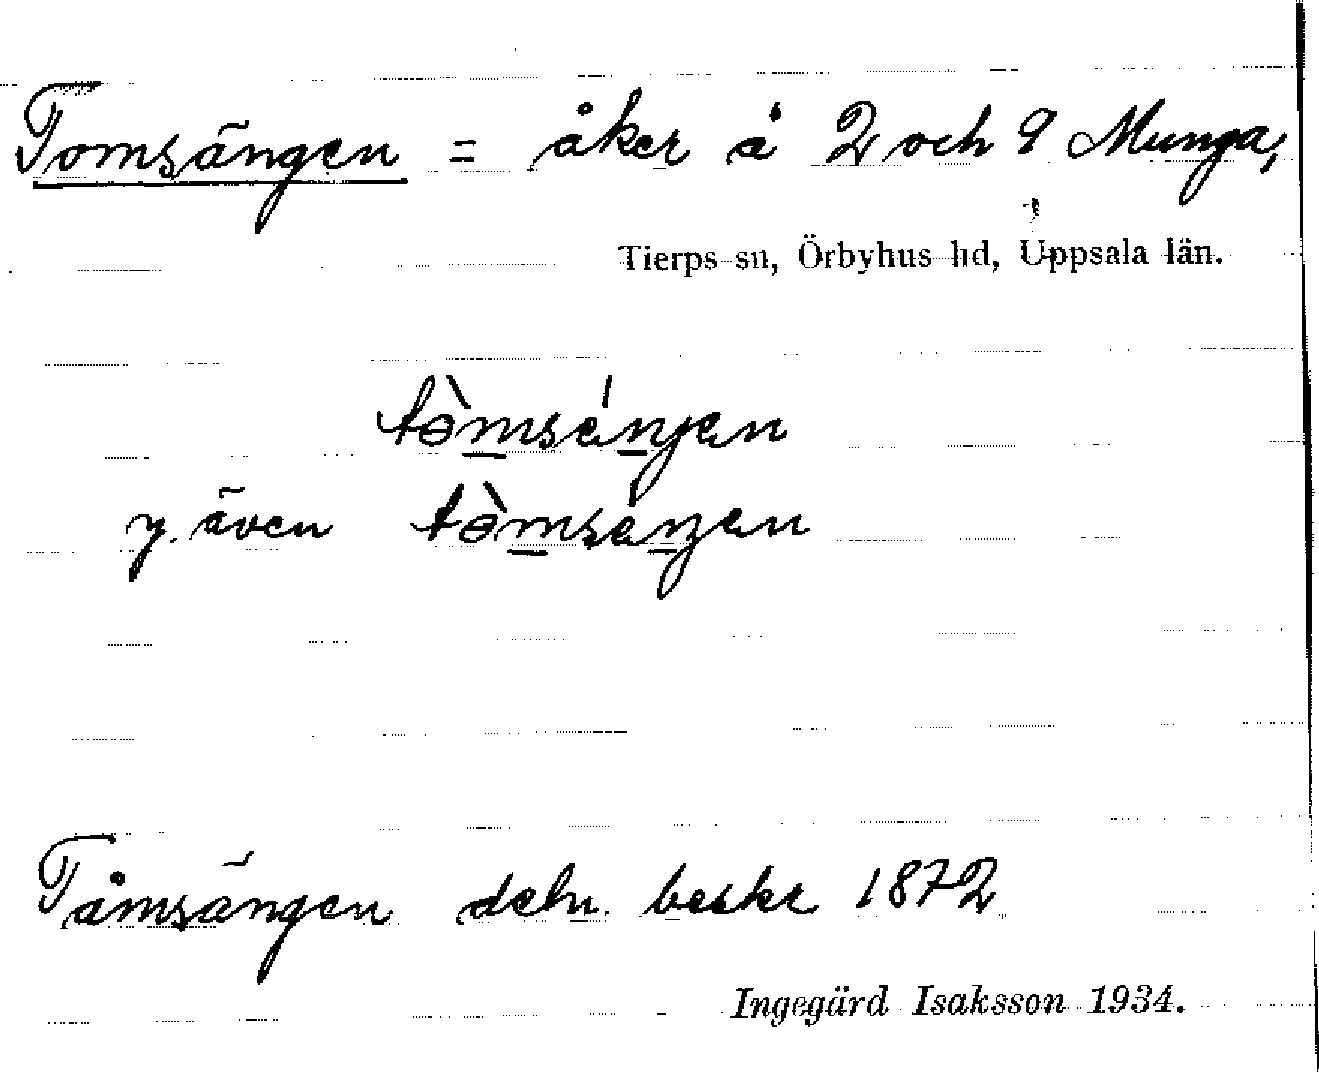 Tomsängen = åker å 2 och 9 Munga,
Tierps sn, Örbyhus hd, Uppsala län.
tòmsáŋen
y. även tòmsáŋen
Tåmsängen deln. beskr 1872
Ingegärd Isaksson 1934.